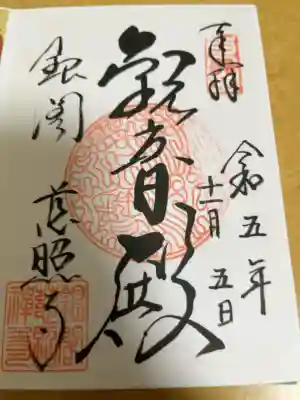 奉拝
令和五年
十一月五日
観音殿
銀閣 慈照寺